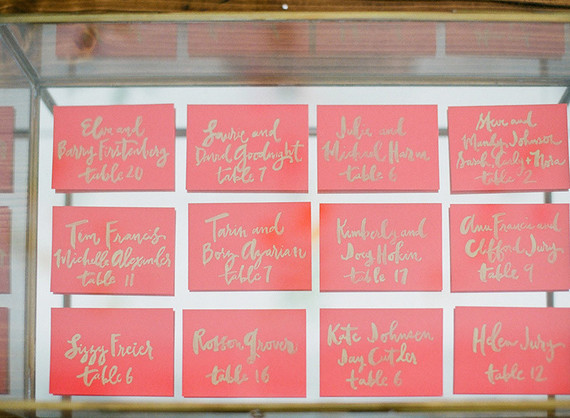 Elva and
Barry Firstenberg
table 20
Laurie and
David Goodnight
table 7
Julie and
Michael
table 6
Steve and
Mandy Johnson
Sarah, Lucy + Nora
table 2
Tem Francis
Michelle Alexander
table 11
Tarin and
Bory Agarian
table 7
Kimberly and
Joey Hopkin
table 17
Ann Francis and
Clifford Jury
table 9
Lizzy Freier
table 6
Rosson Grover
table 16
Kate Johnson
Jay Cutler
table 6
Helen Jury
table 12